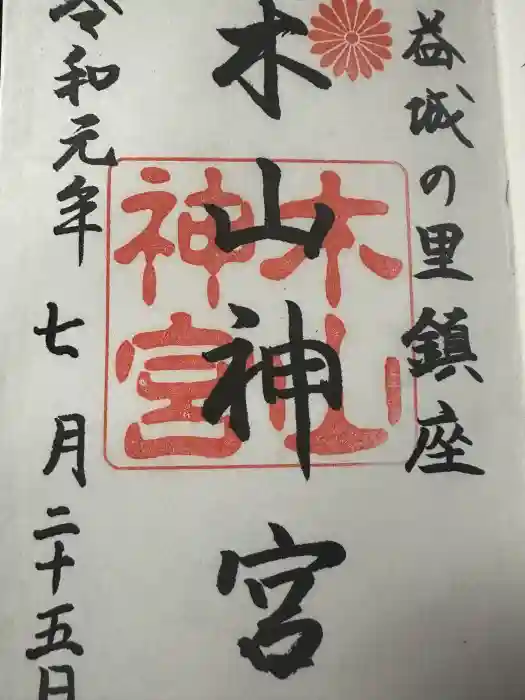 益城の里鎮座
木山神宮
木山
神宮
令和元年七月二十五日